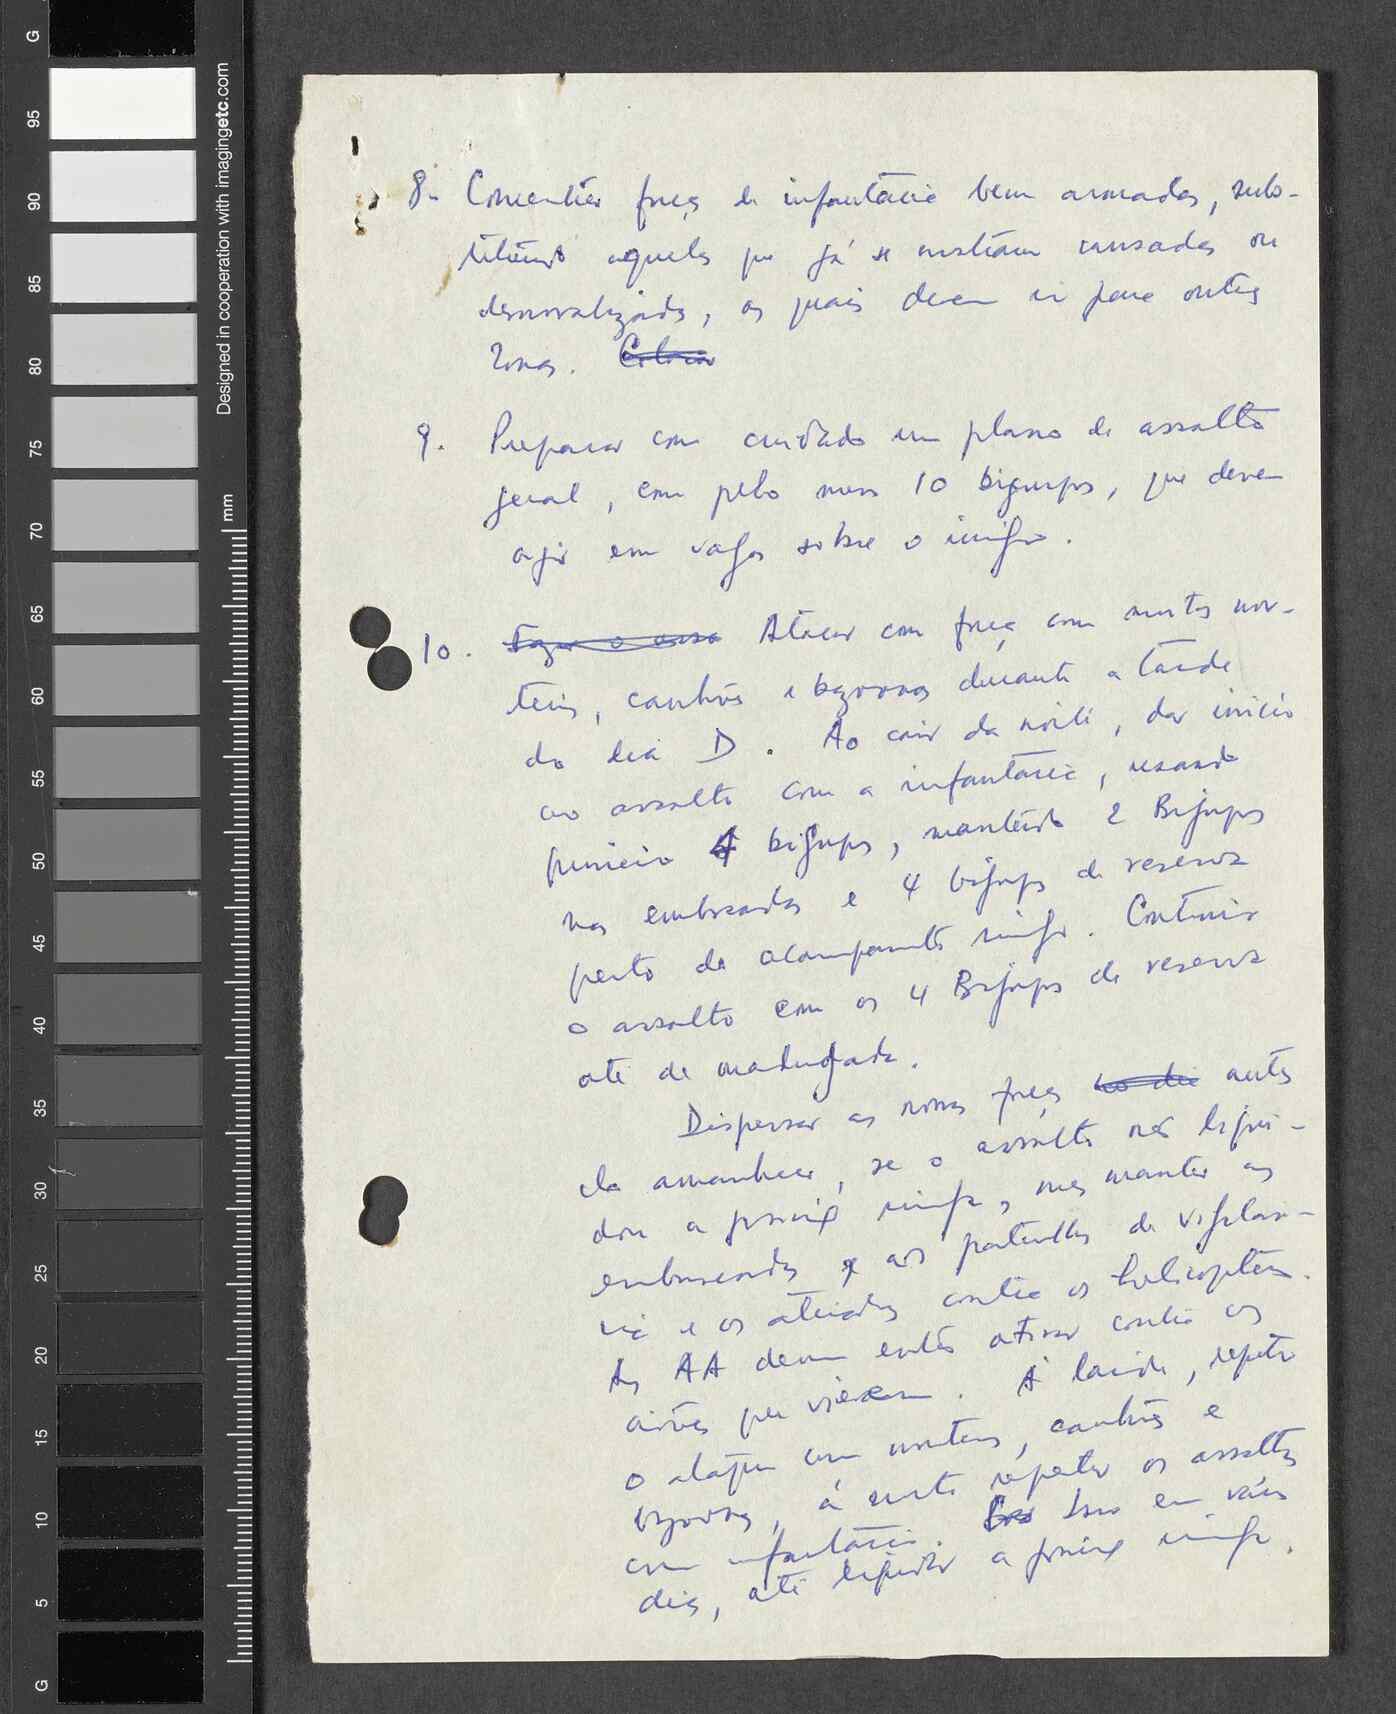 8. Concentrar forças de infantaria bem armadas, subs-
tituindo aquelas que já se mostram cansadas ou
desmoralizadas, as quais devem ir para outras
zonas.
9. Preparar com cuidado um plano de assalto
geral, com pelo menos 10 bigrupos, que devem
agir em vagas sobre o inimigo.
10. Atacar com força com muitos mor-
teiros, canhões e bazookas durante a tarde
do dia D. Ao cair da noite, dar início
ao assalto com a infantaria, usando
primeiro 4 bigrupos, mantendo 2 Bigrupos
nas emboscadas e 4 bigrupos de reserva
perto do acampamento inimigo. Continuar
o assalto com os 4 Bigrupos de reserva
até de madrugada.
Dispersar as nossas forças antes
do amanhecer, se o assalto não liqui-
dou a posição inimiga, mas manter as
emboscadas e as patrulhas de vigilân-
cia e os ataques contra os helicopteros.
As AA devem então atirar contra os
aviões que vierem. À tarde, repetir
o ataque com morteiros, canhões e
bazookas, à noite repetir os assaltos
com infantaria. Isso em vários
dias, até liquidar a posição inimiga.
G
95
90
85
80
75
70
65
60
55
50
45
40
35
30
25
20
15
10
5
G
Designed in cooperation with imagingetc.com
mm